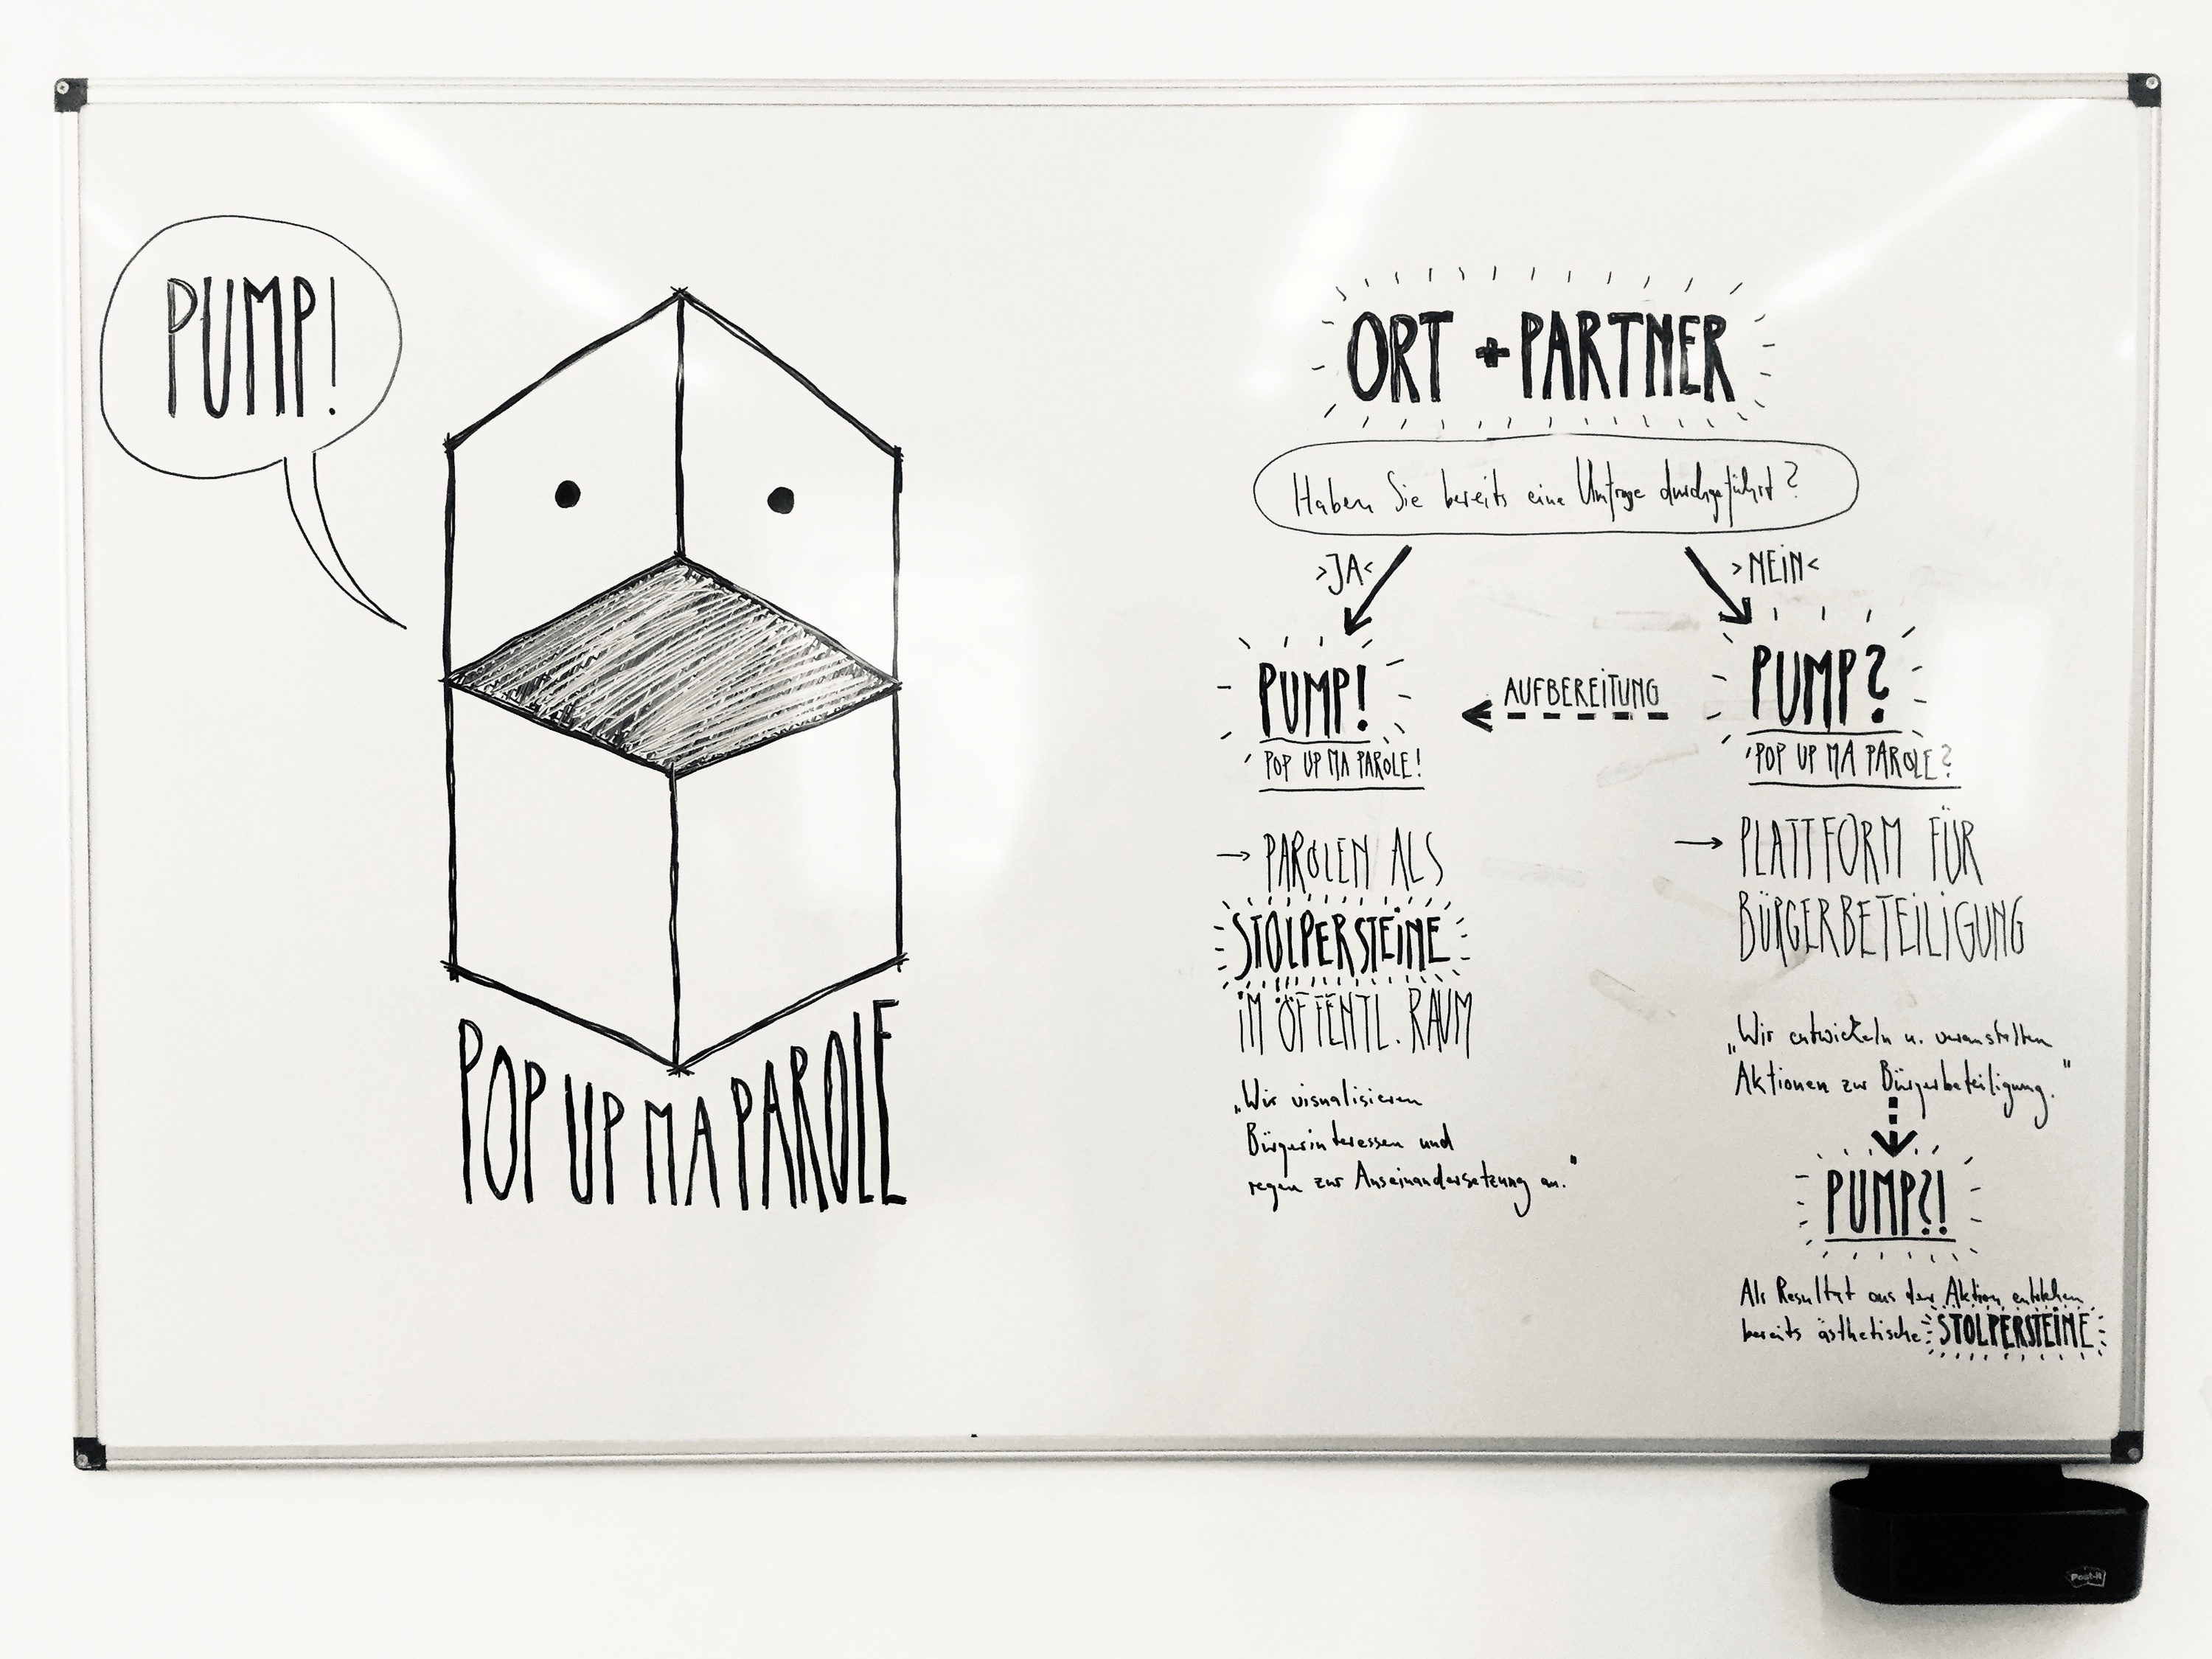 PUMP!
POP UP MA PAROLE
ORT + PARTNER
Haben Sie bereits eine Umfrage durchgeführt?
>JA<
>NEIN<
PUMP!
POP UP MA PAROLE!
AUFBEREITUNG
PUMP?
POP UP MA PAROLE?
→ PAROLEN ALS
STOLPERSTEINE
IM ÖFFENTL. RAUM
„Wir visualisieren
Bürgerinteressen und
regen zur Auseinandersetzung an.“
→ PLATTFORM FÜR
BÜRGERBETEILIGUNG
„Wir entwickeln u. veranstalten
Aktionen zur Bürgerbeteiligung.“
PUMP?!
Als Resultat aus der Aktion entstehen
bereits ästhetische STOLPERSTEINE
Post-it